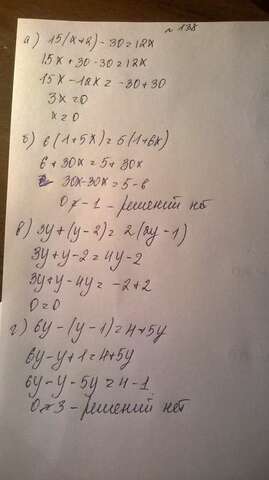 № 138
а) 15(x+2)-30=12x
15x+30-30=12x
15x-12x=-30+30
3x=0
x=0
б) 6(1+5x)=5(1+6x)
6+30x=5+30x
30x-30x=5-6
0≠-1 - решений нет
в) 3y+(y-2)=2(2y-1)
3y+y-2=4y-2
3y+y-4y=-2+2
0=0
г) 6y-(y-1)=4+5y
6y-y+1=4+5y
6y-y-5y=4-1
0≠3 - решений нет